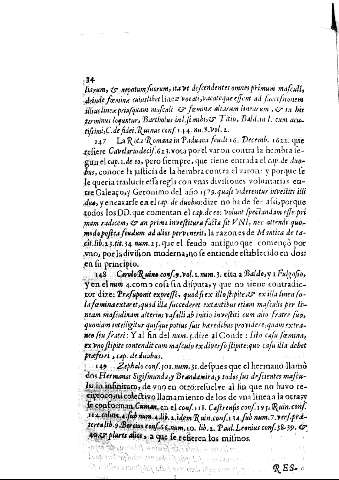 34
liarum, & nepotum suorum, ita vt descendentes omnes primum masculi,
deinde fæminæ cuiuslibet lineæ vocati, vocataque essent ad successionem
illius lineæ priusquam masculi & fæminæ aliarum linearum, & in his
terminis loquuntur, Bartholus in l. Titio, Bald. in l. cum acu
tissimi, C. de fidei. Ruinus cons. 144. nu. 8. vol. 2.
147 La Rota Romana in 16. Decemb. 1622. que
refiere decis. 623. vota por el varon contra la hembra se
gun el cap. 1. de eo, pero siempre, que tiene entrada el cap. de duo-
bus, conoce la justicia de la hembra contra el varon: y porque se
le queria traducir essa regla con vnas divisiones voluntarias en-
tre Galeaço, y Geronimo del año 1579. quasi viderentur investiti illi
duo, y encaxarse en el cap. de duobus dize no ha de ser assi, porque
todos los DD. que comentan el cap. de eo: volunt spectandam esse pri
mam radicem, & an prima investitura facta sit VNI, nec attendi quo-
modo postea feudum ad alios pervenerit, la razon es de Mantica de ta-
cit. lib. 23. tit. 34. num. 25. que el feudo antiguo que començó por
vno, por la division moderna, no se entiende establecido en dos,
en su principio.
148 Carolo Ruino cons. 9. vol. 1. num. 3. cita a Baldo, y a Fulgosio,
y en el num. 4. como cosa sin disputa, y que no tiene contradic-
tor dize: Præsuponit expressè, quod sic illo stipite, & ex illa linea so-
la fæmina extaret, quod illa succederet extantibus etiam masculis per li-
neam masculinam alterius vasalli ab initio investiti cum suo fratre suo,
quoniam intelligitur quisque potius suis hæredibus providere, quam extra-
neo siu fratri: Y al fin del num. 5. dize al Conde: Isto casu fæmina,
ex vno stipite contendit cum masculo ex diverso stipite: quo casu illa debet
præferri, cap. de duobus.
149 Zephalo cons. 102. num. 31. despues que el hermano llamò
dos Hermanos Sigismundo, y Brandemira, y todos sus descendientes mascu-
los in infinitum, de vno en otro resuelve al sin que no havo re-
ciproco, ni colectivo llamamiento de los de vna linea a la otra, y
se conforman Cuman. en el cons. 118. Castrensis cons. 193. Ruin. cons.
num. 4. lib. 2. idem Ruin. cons. 34. sub num. 7. vers. præ-
num. 10. lib. 2. Paul. Leonius cons. 38. 39. &
40. & plures alios, a que se refieren los mismos.
RES-